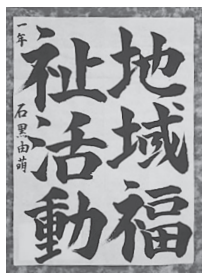 地域福
祉活動
一年 石黒由萌